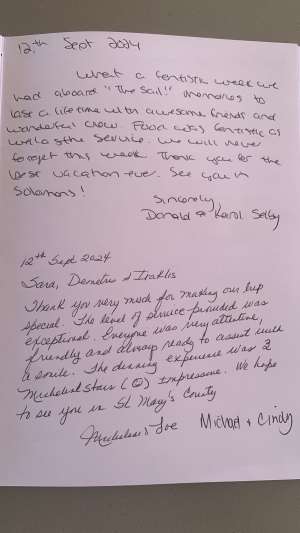 12th Sept 2024
What a fantistic week we
had aboard "The Sail!" memories to
last a lifetime with awesome friends and
wonderful crew. Food was fantistic as
well as the service. We will never
forget this week. Thank you for the
best vacation ever. See you in
Solomons!
Sincerely,
Donald & Karol Selby
12th Sept 2024
Sara, Demetris & Iraklis
Thank you very much for making our trip
special. The level of service provided was
exceptional. Everyone was very attentive,
friendly and always ready to assist with
a smile. The dinning experience was 2
Michelin Stars (☺) Impressive. We hope
to see you in St Mary's County
Joe Michael + Cindy